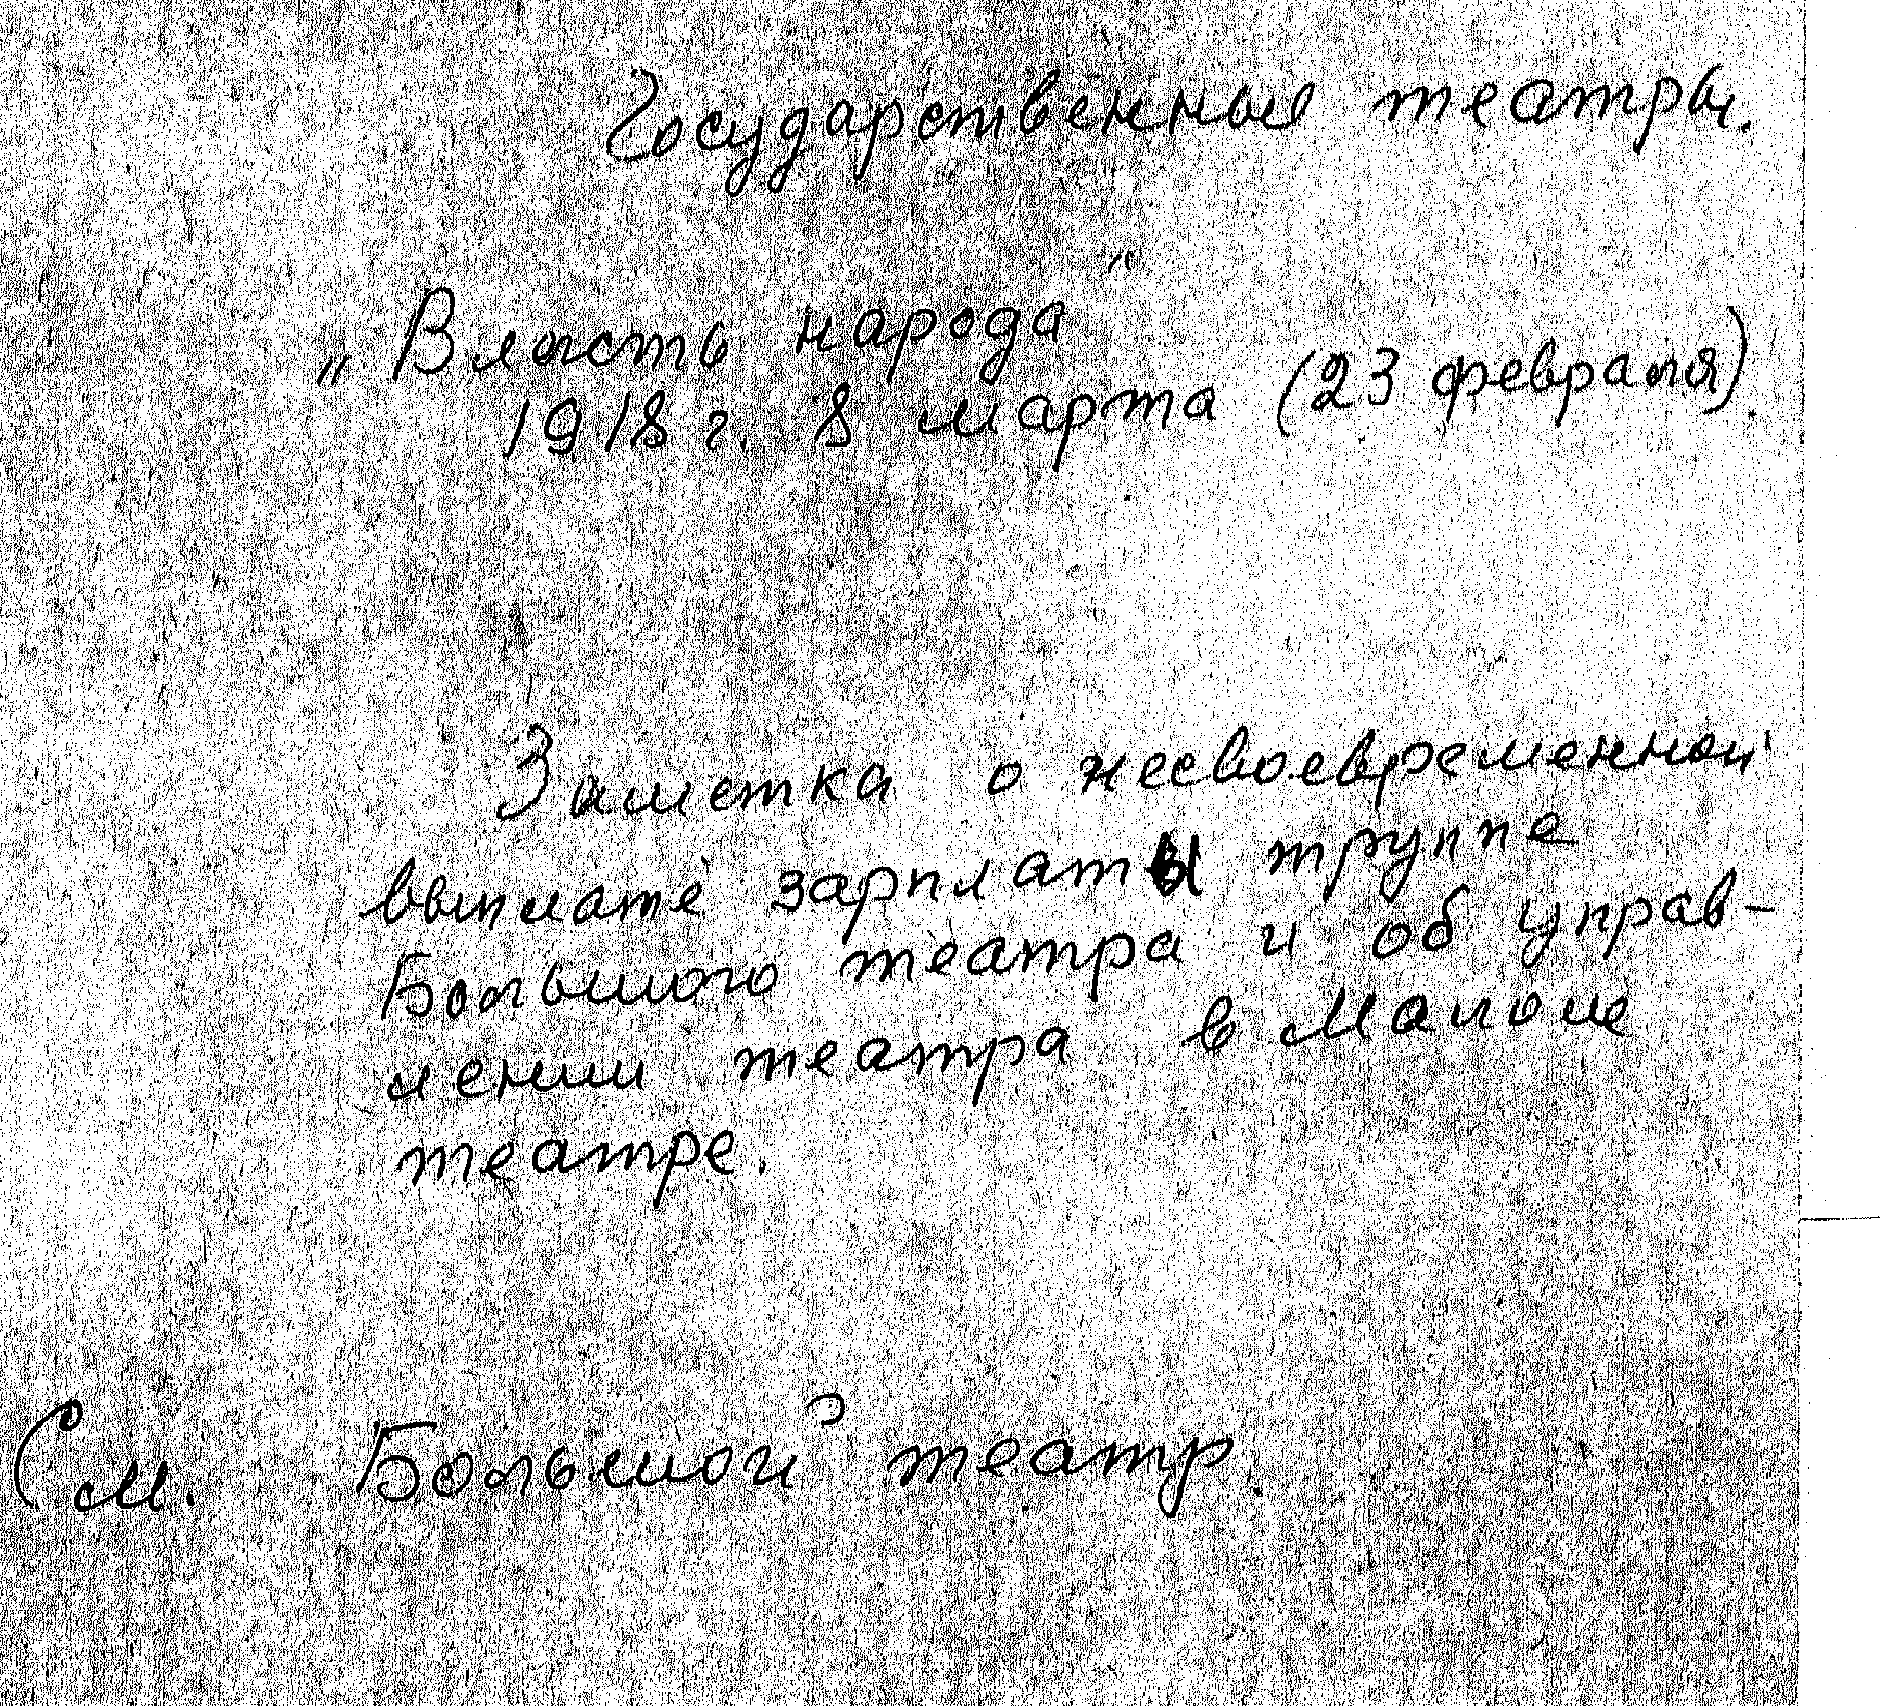 Государственные театры.
„Власть народа"
1918 г. 8 марта (23 февраля).
Заметка о несвоевременной
выплате зарплаты труппе
Большого театра и об управ-
лении театра в Малом
театре.
См. Большой театр.